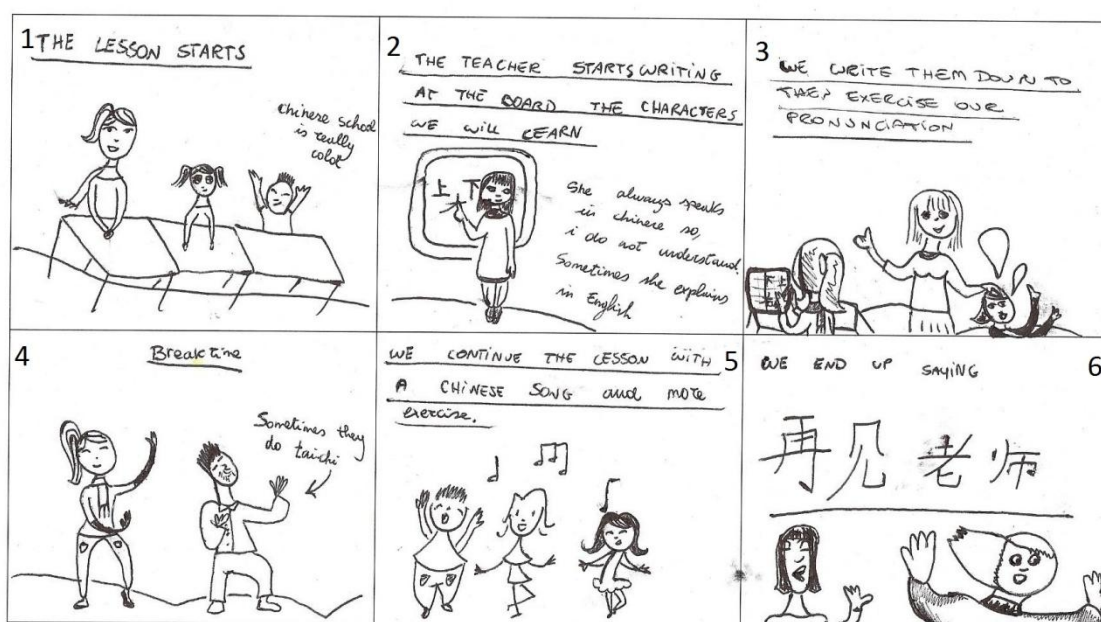 1
THE LESSON STARTS
chinese school
is really
cold
2
THE TEACHER STARTS WRITING
AT THE BOARD THE CHARACTERS
WE WILL LEARN
上 下
She always speaks
in chinese so,
i do not understand.
Sometimes she explains
in English
3
WE WRITE THEM DOWN TO
THEN EXERCISE OUR
PRONUNCIATION
4
Breaktime
Sometimes they
do taichi
5
WE CONTINUE THE LESSON WITH
A CHINESE SONG and more
exercise.
6
WE END UP SAYING
再见老师